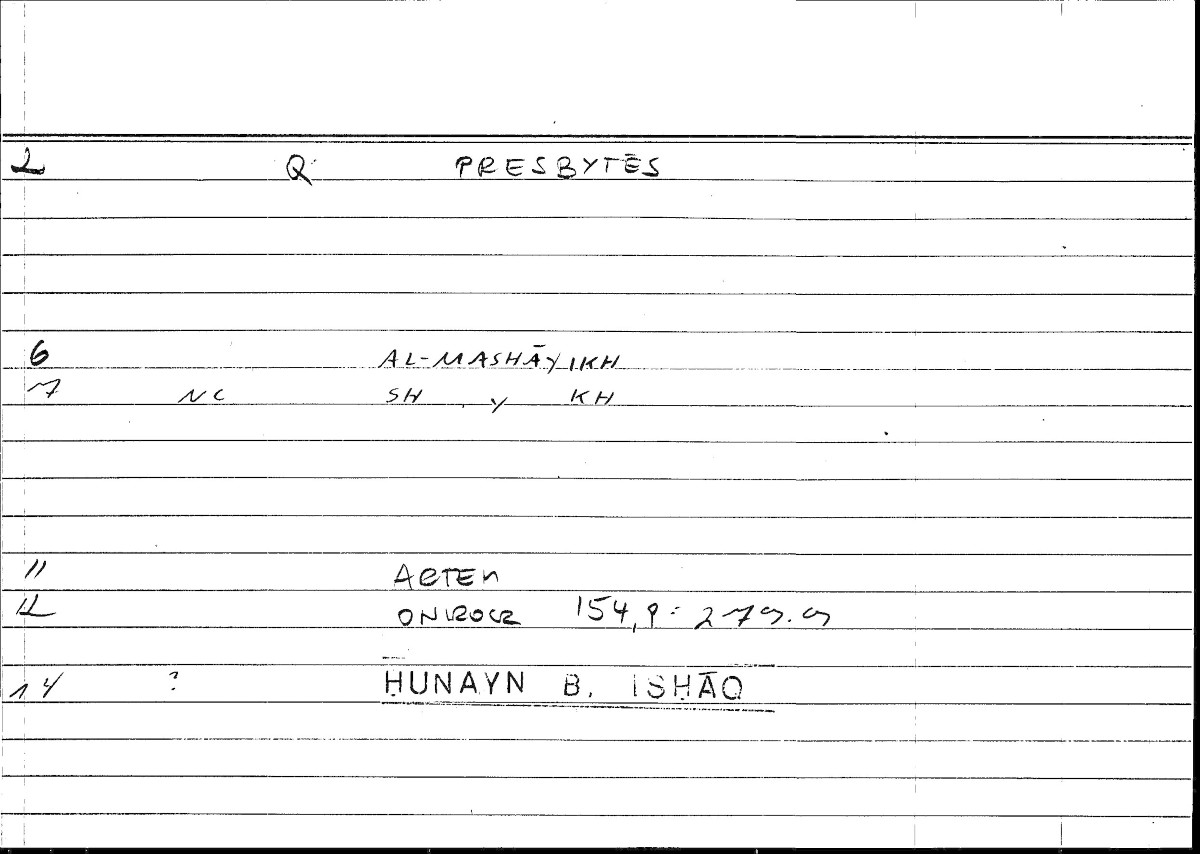 2 Q PRESBYTĒS
6 AL-MASHĀYIKH
7 NC SH Y KH
11 ARTEM
12 ONIROCR 154,9 : 279.9
14 ? ḤUNAYN B. ISḤĀQ